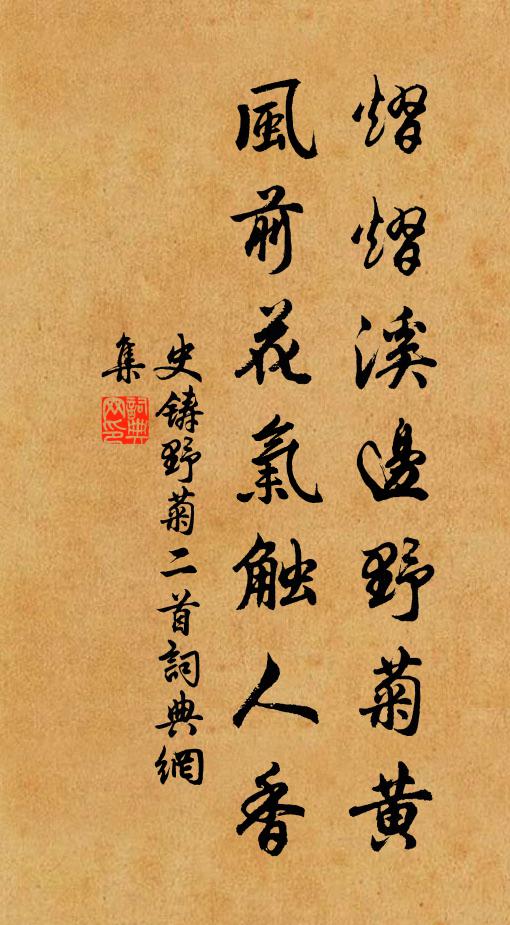 熠熠溪邊野菊黄
風前花氣触人香
史鑄野菊二首詞典網
集
詞典網印